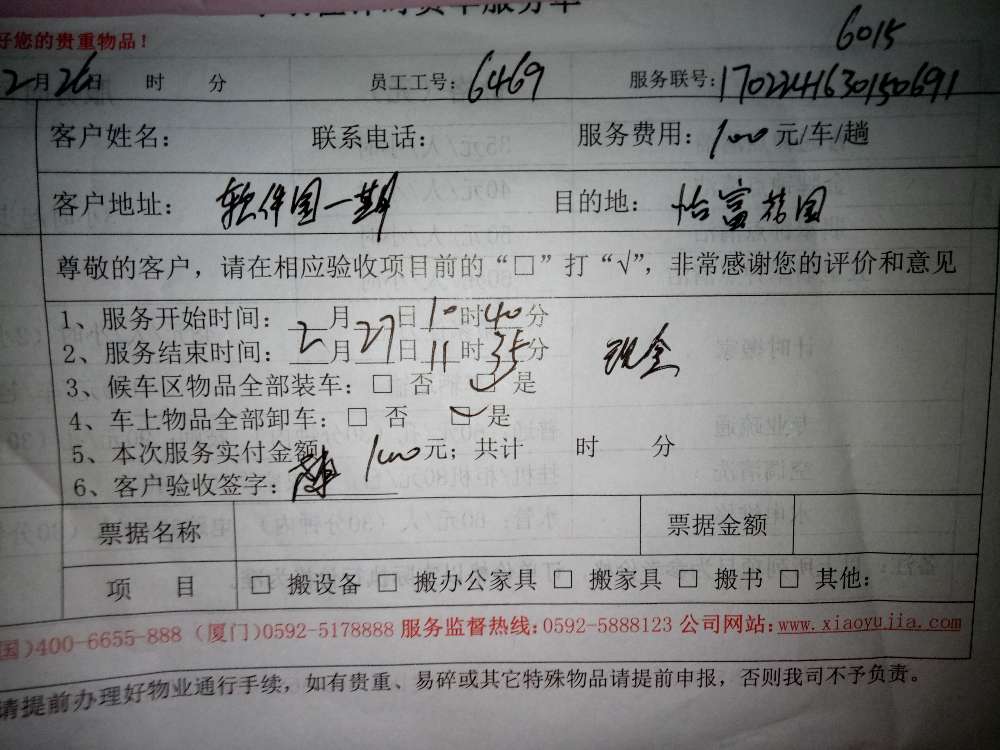 时货车服务单
好您的贵重物品！
6015
2月26日 时 分 员工工号：6469 服务联号：1702241630150691
客户姓名： 联系电话： 服务费用：100元/车/趟
客户地址：软件园一期 目的地：怡富花园
尊敬的客户，请在相应验收项目前的“□”打“√”，非常感谢您的评价和意见
1、服务开始时间：2月27日10时40分
2、服务结束时间：2月27日11时35分 现金
3、候车区物品全部装车：□ 否 □ 是
4、车上物品全部卸车：□ 否 是
5、本次服务实付金额100元；共计 时 分
6、客户验收签字：
票据名称 票据金额
项 目 □ 搬设备 □ 搬办公家具 □ 搬家具 □ 搬书 □ 其他：
国)400-6655-888 (厦门)0592-5178888 服务监督热线：0592-5888123 公司网站：www.xiaoyujia.com
请提前办理好物业通行手续，如有贵重、易碎或其它特殊物品请提前申报，否则我司不予负责。